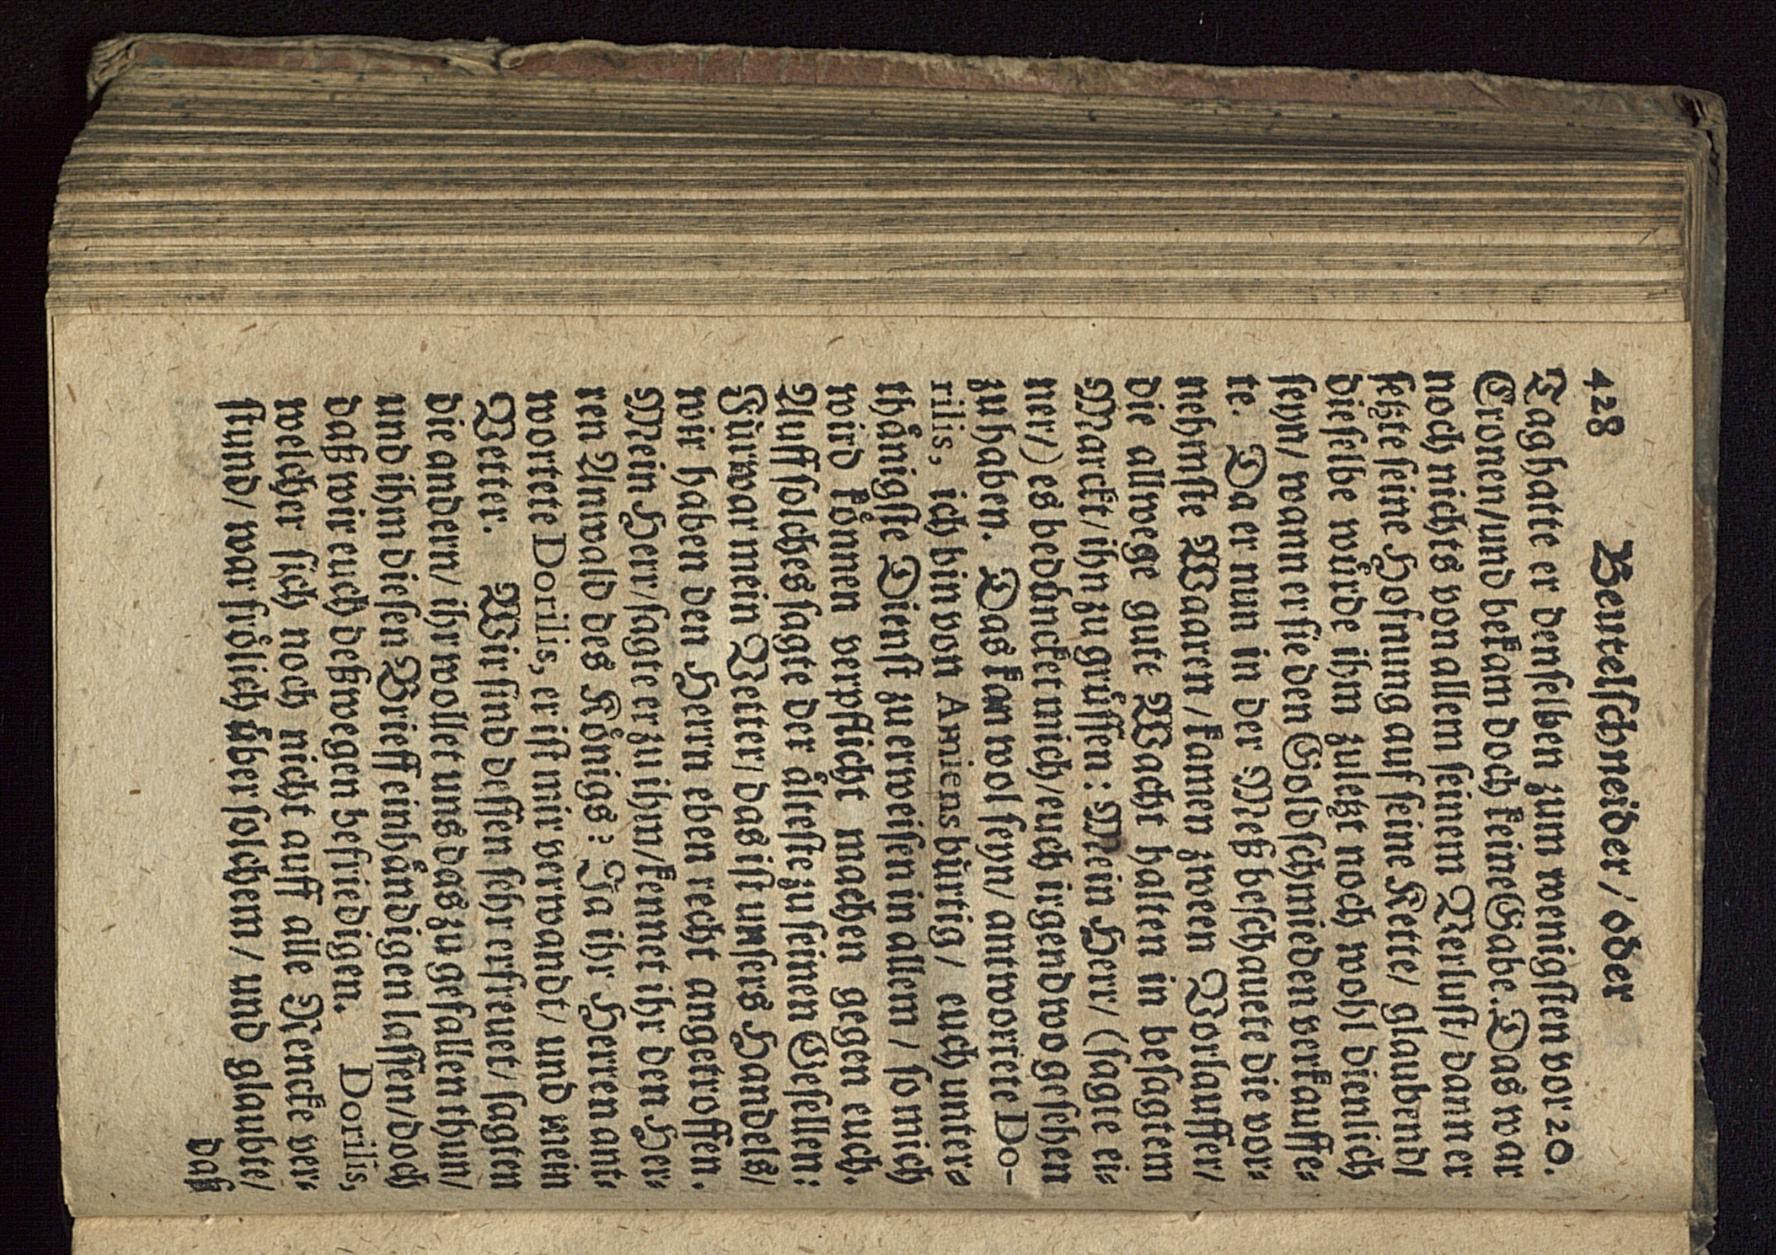 428 Beutelschneider / oder
Tag hatte er denselben zum wenigsten vor 20.
Cronen/und bekam doch keine Gabe. Das war
noch nichts von allem seinem Verlust/ dann er
setzte seine Hofnung auf seine Kette/ glaubend/
dieselbe würde ihm zuletzt noch wohl dienlich
seyn/ wann er sie den Goldschmieden verkauffe-
te. Da er nun in der Meß beschauete die vor-
nehmste Waaren / kamen zween Vorlauffer/
die allwege gute Wacht halten in besagtem
Marckt/ ihn zu grüssen: Mein Herr/ (sagte ei-
ner/) es bedüncket mich/ euch irgendwo gesehen
zu haben. Das kan wol seyn/ antwortete Do-
rilis, ich bin von Amiens bürtig/ euch unter-
thänigste Dienst zu erweisen in allem / so mich
wird können verpflicht machen gegen euch.
Auff solches sagte der älteste zu seinen Gesellen:
Fürwar mein Vetter/ das ist unsers Handels/
wir haben den Herrn eben recht angetroffen.
Mein Herr/ sagte er zu ihm/ kennet ihr den Her-
ren Anwald des Königs? Ja ihr Herren ant-
wortete Dorilis, er ist mir verwandt/ und mein
Vetter. Wir sind dessen sehr erfreuet/ sagten
die andern/ ihr wollet uns das zu gefallen thun/
und ihm diesen Brieff einhändigen lassen/ doch
daß wir euch deßwegen befriedigen. Dorilis,
welcher sich noch nicht auff alle Rencke ver-
stund/ war frölich über solchem / und glaubte/
daß